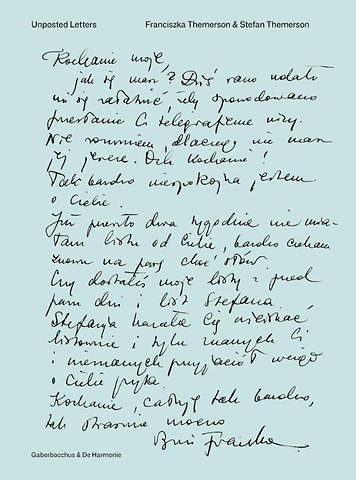 Unposted Letters
Franciszka Themerson & Stefan Themerson
Kochanie moje,
jak się masz? Dziś rano udało
mi się załatwić, żeby spowodowano
przesłanie Ci telegraficzne wizy.
Nie rozumiem, dlaczego nie masz
jej jeszcze. Och Kochanie!
Tak bardzo niespokojna jestem
o Ciebie.
Już prawie dwa tygodnie nie mia-
łam listu od Ciebie, bardzo czekam
znowu na parę choć słów.
Czy dostałeś moje listy z przed
paru dni i list Stefana,
kazała Cię uściskać,
listownie i tylu znanych Ci
i nieznanych przyjaciół wciąż
o Ciebie pyta.
Kochanie, całuję tak bardzo,
tak strasznie mocno
Franka
Gaberbocchus & De Harmonie